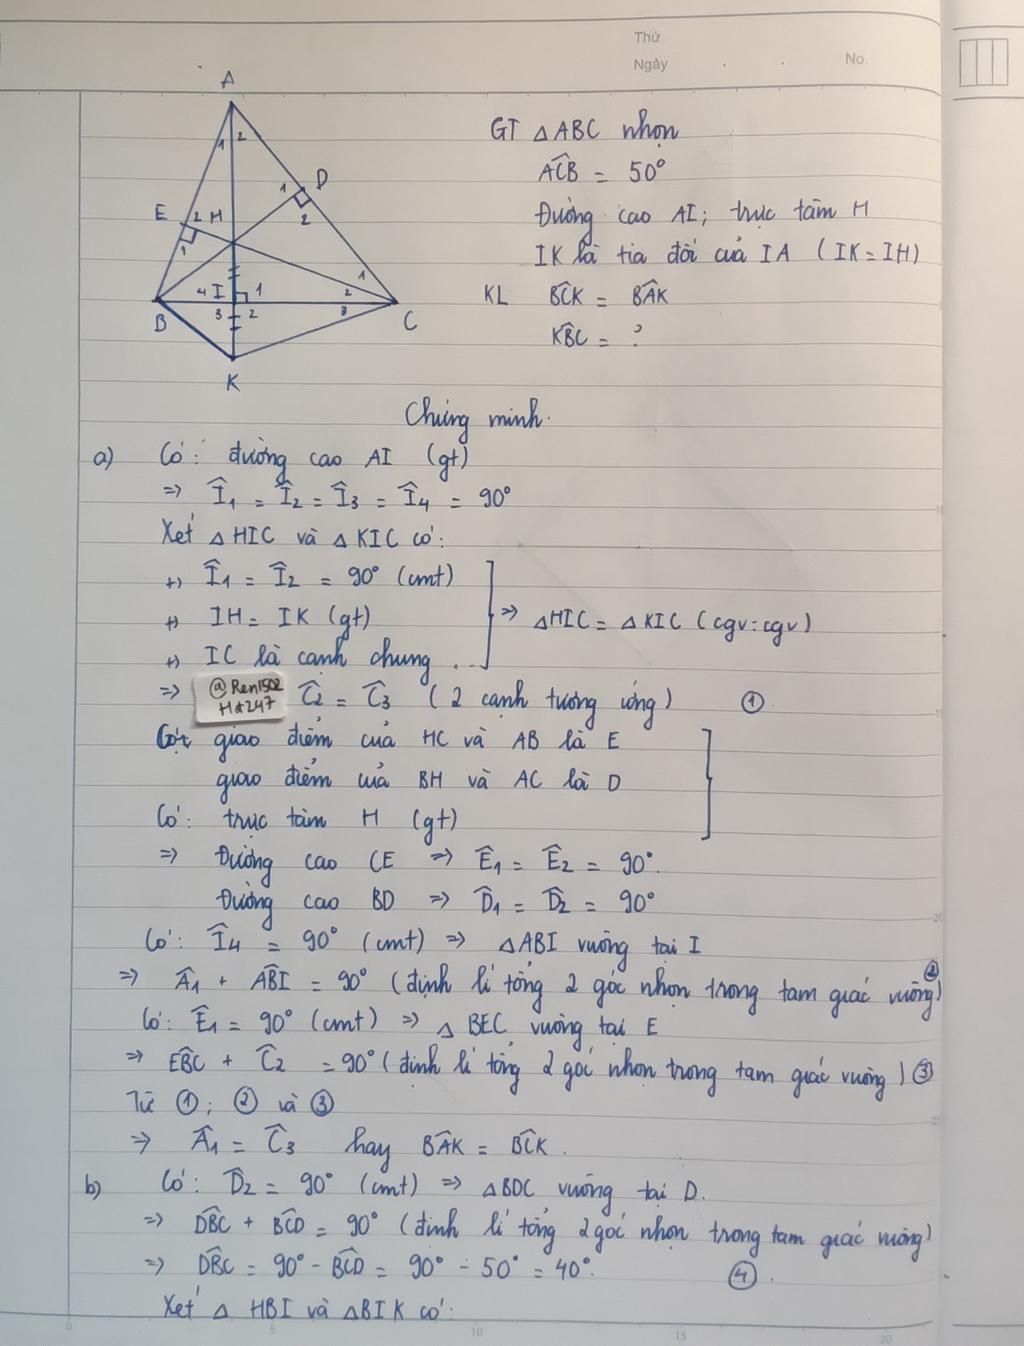 Thứ
Ngày
No.
A
1 2
D
1
2
E 2 H
1
1
4 I 1 2
B 3 2 3 C
K
GT △ABC nhọn
ACB̂ = 50°
Đường cao AI; trực tâm H
IK là tia đối của IA (IK = IH)
KL BĈK = BÂK
KB̂C = ?
Chứng minh.
a) Có: đường cao AI (gt)
=> Î1 = Î2 = Î3 = Î4 = 90°
Xét △HIC và △KIC có:
+) Î1 = Î2 = 90° (cmt)
+) IH = IK (gt) => △HIC = △KIC (cgv-cgv)
+) IC là cạnh chung
=> @Ren1502 Hx247 Ĉ2 = Ĉ3 (2 cạnh tương ứng) ①
Gọi giao điểm của HC và AB là E
giao điểm của BH và AC là D
Có: trực tâm H (gt)
=> Đường cao CE => Ê1 = Ê2 = 90°.
Đường cao BD => D̂1 = D̂2 = 90°
Có: Î4 = 90° (cmt) => △ABI vuông tại I
=> Â1 + AB̂I = 90° (định lí tổng 2 góc nhọn trong tam giác vuông) ②
Có: Ê1 = 90° (cmt) => △BEC vuông tại E
=> EB̂C + Ĉ2 = 90° (định lí tổng 2 góc nhọn trong tam giác vuông) ③
Từ ①; ② và ③
=> Â1 = Ĉ3 hay BÂK = BĈK.
b) Có: D̂2 = 90° (cmt) => △BDC vuông tại D.
=> DB̂C + BĈD = 90° (định lí tổng 2 góc nhọn trong tam giác vuông)
=> DB̂C = 90° - BĈD = 90° - 50° = 40°. ④
Xét △HBI và △BIK có:
0 5 10 15 20